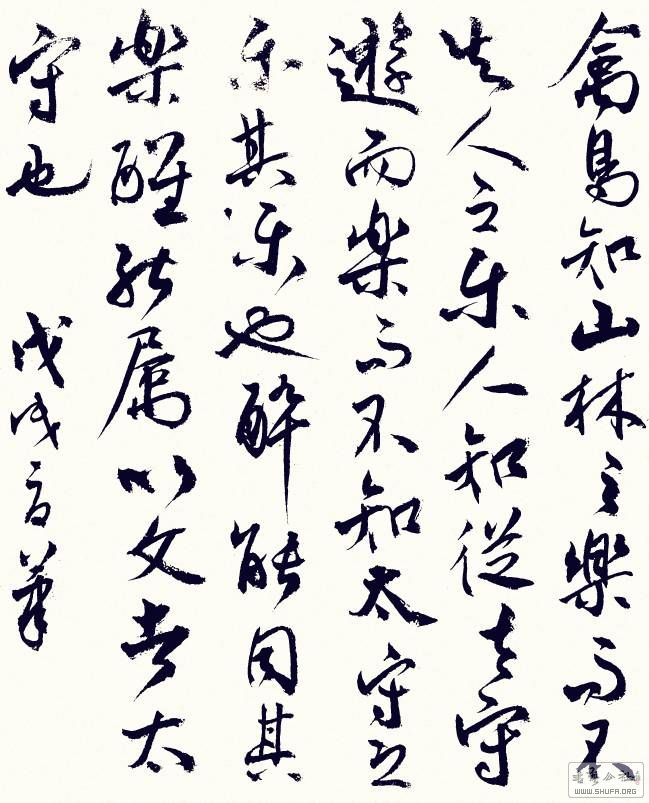 禽鳥知山林之樂而不
知人之乐人知從太守
遊而樂而不知太守之
乐其乐也醉能同其
樂醒能属以文者太
守也 戊戌
WWW.SHUFA.ORG